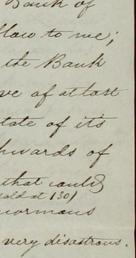 Bank of
allow to me;
the Bank
ve of at last
state of it's
wards of
that could
sold at 130)
enormous
very disastrous.